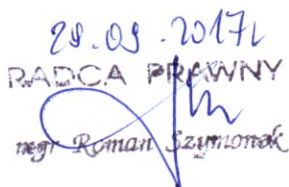 29.09.2017r
RADCA PRAWNY
mgr Roman Szymonek